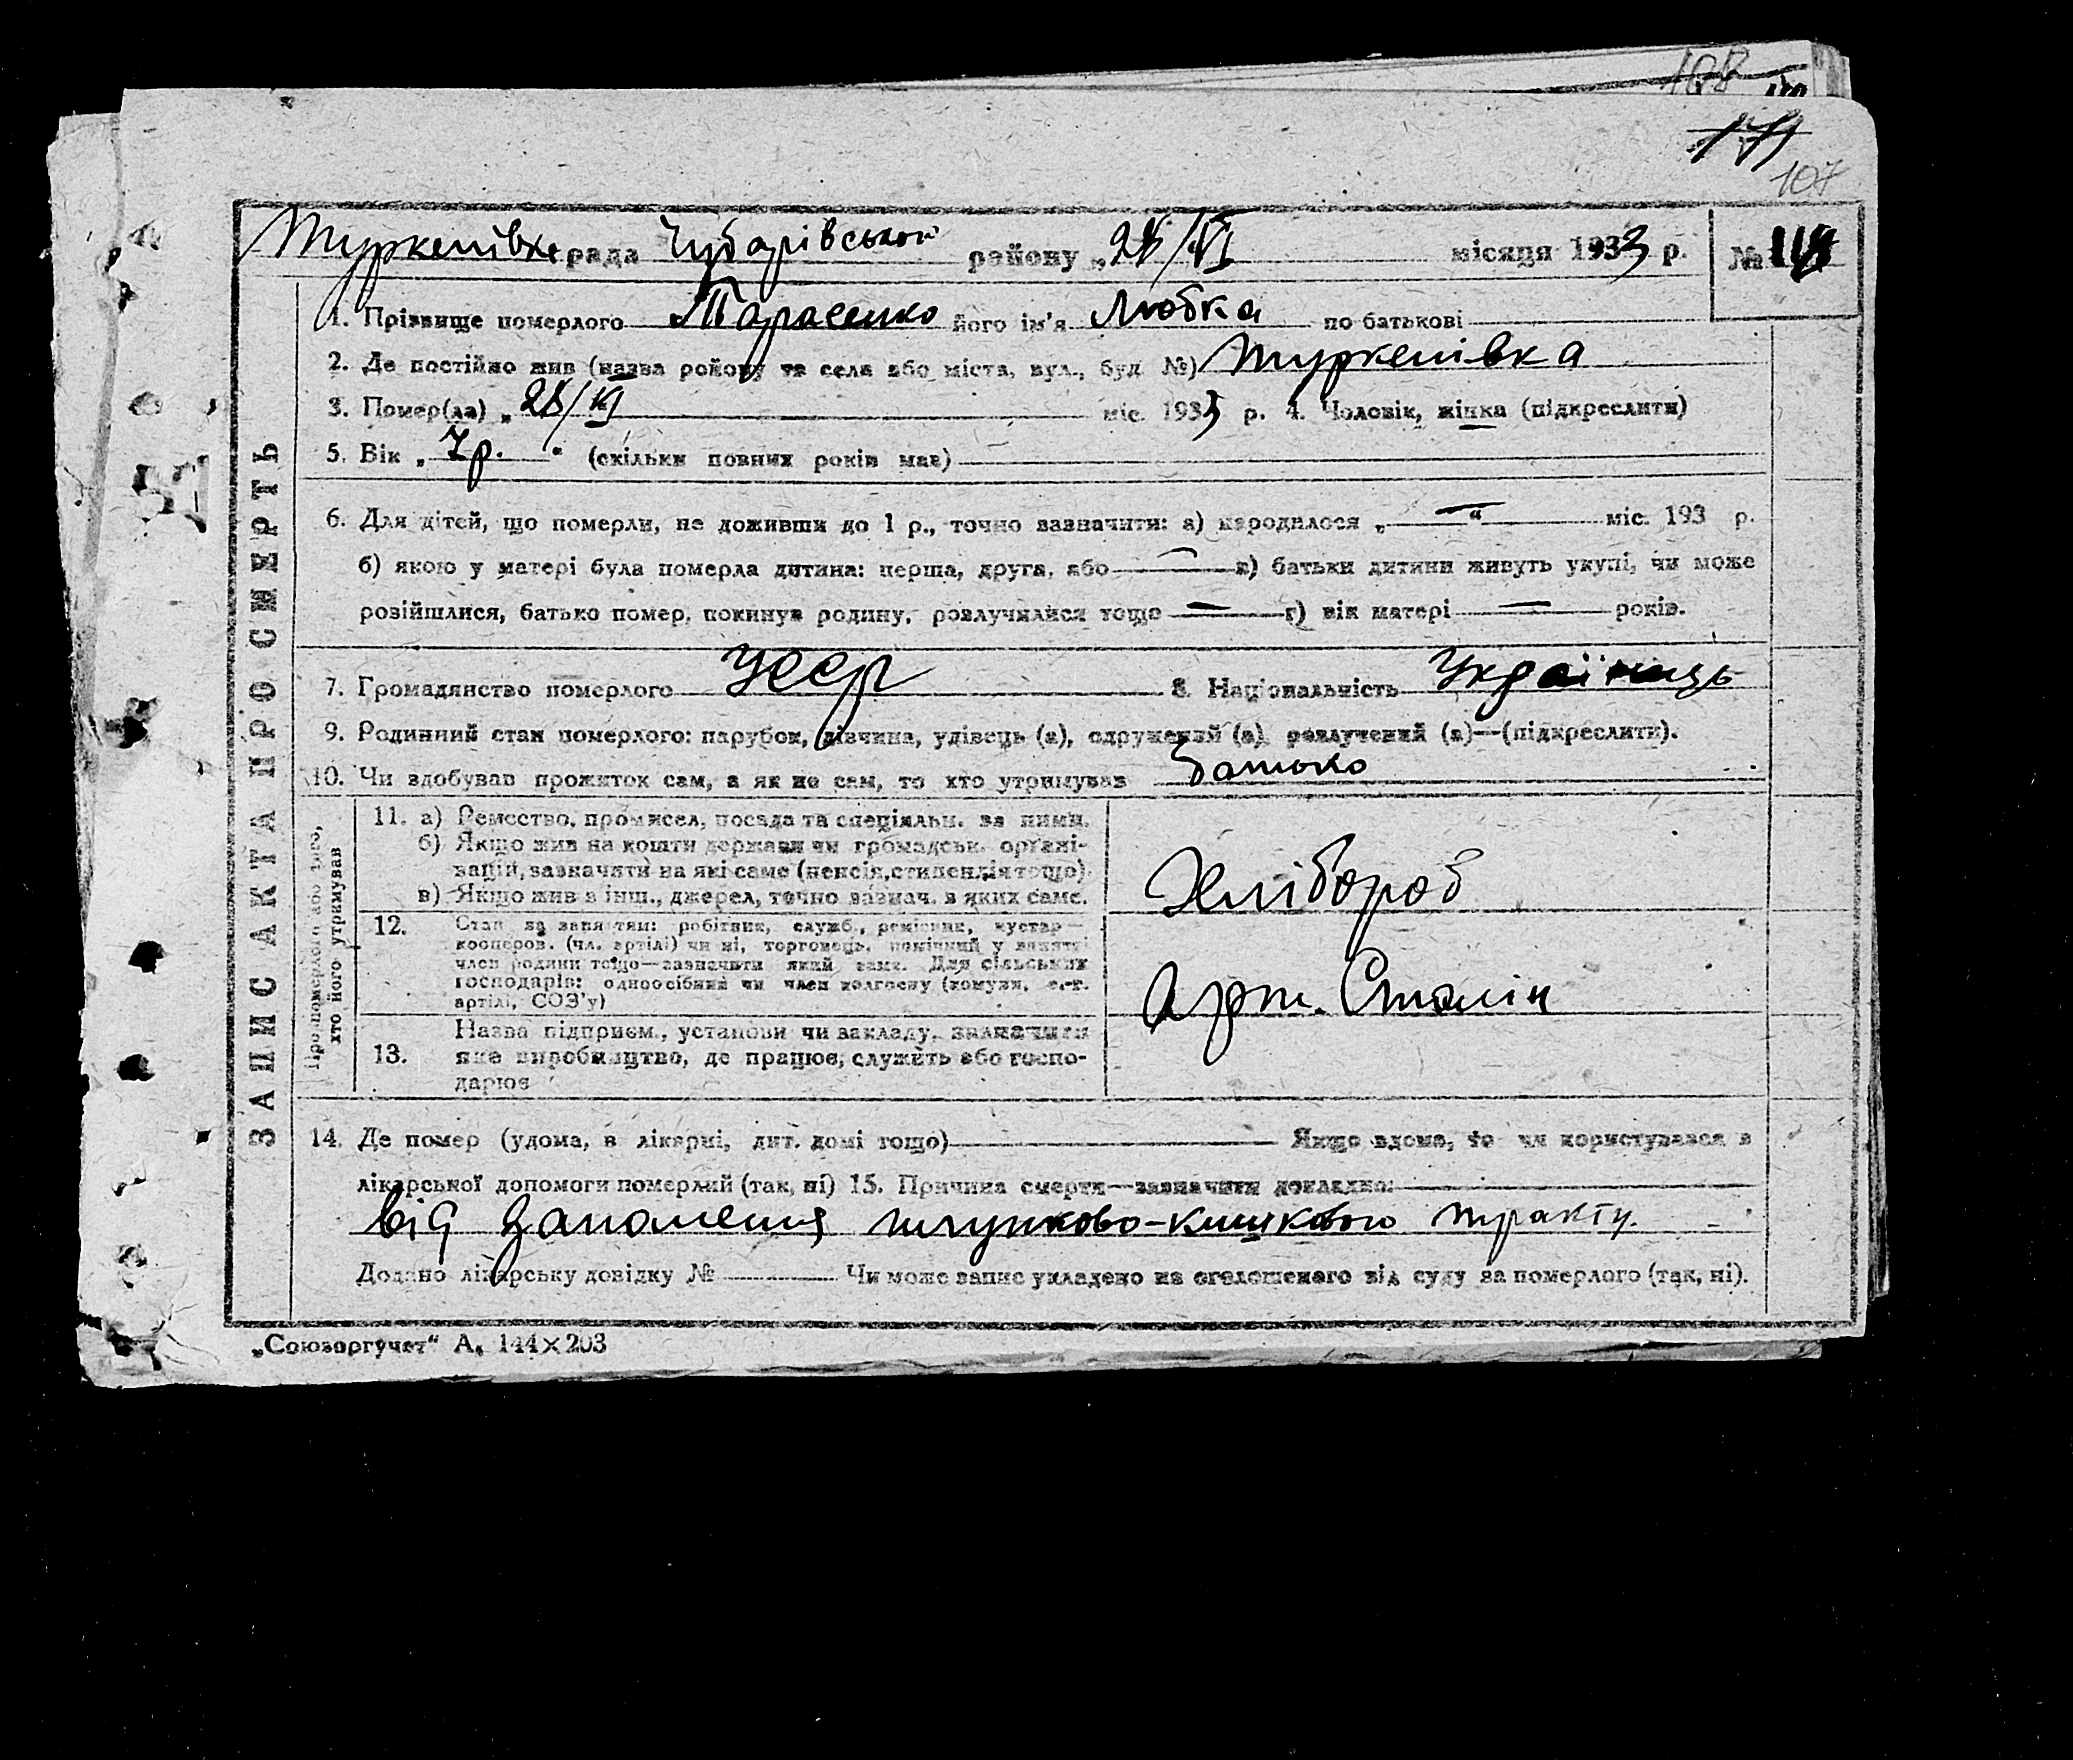 108
107
Туркенівка рада Чубарівського району „28/VI місяця 1933 р. №
1. Прізвище померлого Тарасенко його ім'я Любка по батькові
2. Де постійно жив (назва району та села або міста, вул., буд №) Туркенівка
3. Помер(ла) „28/VI міс. 1933 р. 4. Чоловік, жінка (підкреслити)
5. Вік „7 р. “ (скільки повних років мав)
6. Для дітей, що померли, не доживши до 1 р., точно зазначити: а) народилося „—“ міс. 193 р.
б) якою у матері була померла дитина: перша, друга, або — в) батьки дитини живуть укупі, чи може
розійшлися, батько помер, покинув родину, розлучилися тощо — г) вік матері — років.
7. Громадянство померлого УССР 8. Національність Українець
9. Родинний стан померлого: парубок, дівчина, удівець (а), одружений (а) розлучений (а)—(підкреслити).
10. Чи здобував прожиток сам, а як не сам, то хто утримував Батько
ЗАПИС АКТА ПРО СМЕРТЬ
Про померлого або того, хто його утримував
11. а) Ремество, промисел, посада та спеціяльн. за ними.
б) Якщо жив на кошти держави чи громадськ. органі-
зацій, зазначити на які саме (пенсія, стипендія тощо).
в) Якщо жив з інш., джерел, точно зазнач. з яких саме.
Хлібороб
12. Стан за заняттям: робітник, служб., ремісник, кустар—
кооперов. (чл. артілі) чи ні, торговець, помічний у занятті
член родини тощо—зазначити який саме. Для сільських
господарів: одноосібний чи член колгоспу (комуни, с.-г.
артілі, СОЗ'у)
Арт. Сталін
13. Назва підприєм., установи чи закладу, зазначити
яке виробництво, де працює, служить або госпо-
дарює
14. Де помер (удома, в лікарні, дит. домі тощо) Якщо вдома, то чи користувався з
лікарської допомоги померлий (так, ні) 15. Причина смерти—зазначити докладно:
від запалення шлунково-кишкового тракту.
Додано лікарську довідку № Чи може запис укладено на оголошеного від суду за померлого (так, ні).
„Союзоргучет“ А, 144×203